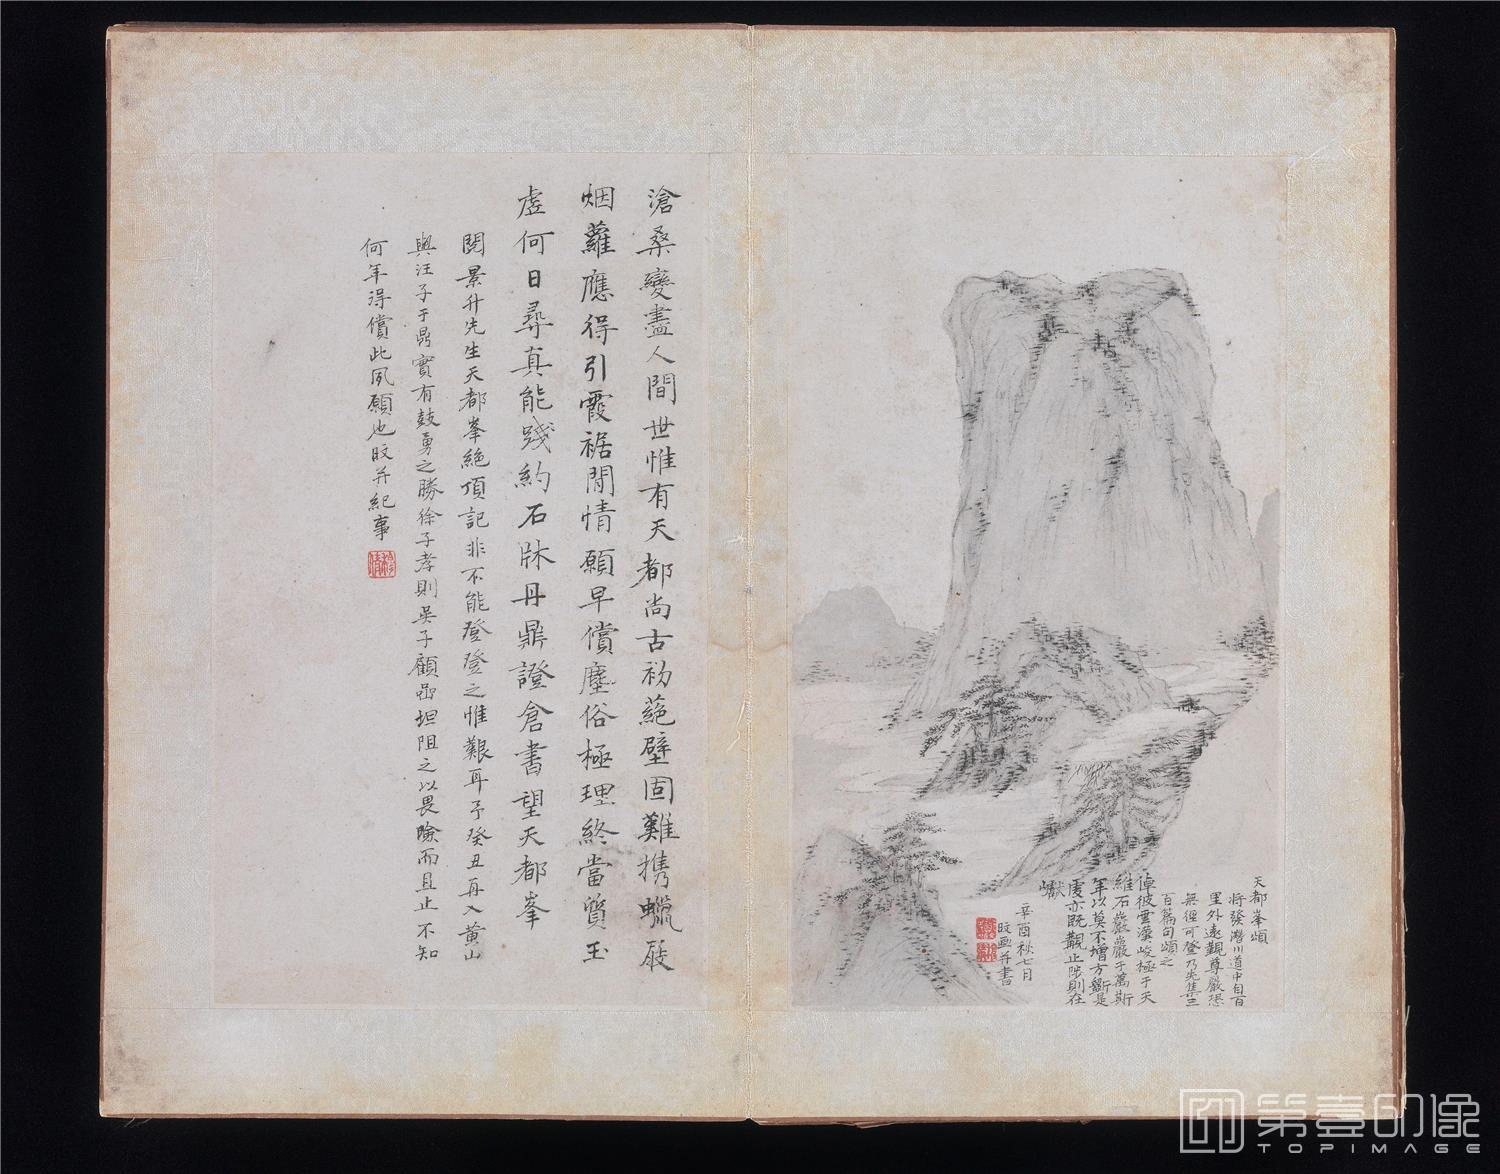 天都峯頌
將發潛川道中自百
里外遠觀尊嚴恐
無徑可登乃先集三
百篇句頌之
倬彼雲漢峻極于天
維石巖巖于萬斯
年以莫不增方斲是
虔亦既觀止陟則在
巘
辛酉秋七月
旼畫并書
滄桑變盡人間世惟有天都尚古初蒞壁固難携蠟屐
烟蘿應得引霞裾閒情願早償塵俗極理終當質玉
虛何日尋真能踐約石牀丹鼎證倉書望天都峯
閱景升先生天都峯絕頂記非不能登登之惟艱耳予癸丑再入黃山
與汪子于鼎實有鼓勇之勝徐子孝則吳子顧嵒坦阻之以畏險而且止不知
何年得償此夙願也旼并紀事
第壹印像
TOPIMAGE